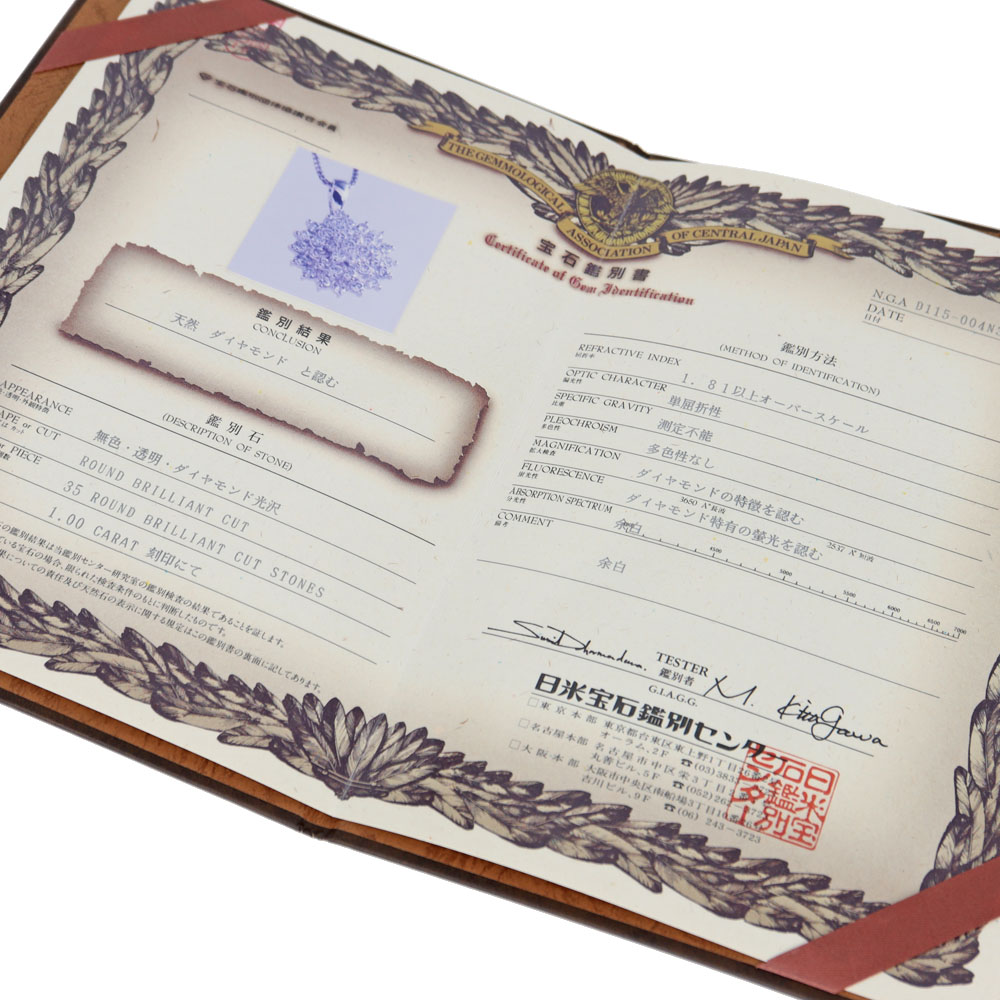 THE GEMMOLOGICAL ASSOCIATION OF CENTRAL JAPAN
宝石鑑別書
Certificate of Gem Identification
鑑別結果
CONCLUSION
天然 ダイヤモンド と認む
鑑別石
(DESCRIPTION OF STONE)
APPEARANCE
無色・透明・ダイヤモンド光沢
APE or CUT
ROUND BRILLIANT CUT
PIECE
35 ROUND BRILLIANT CUT STONES
1.00 CARAT 刻印にて
の鑑別結果は当鑑別センター研究室の鑑別検査の結果であることを証します。
ている宝石の場合、限られた検査条件のもとに判断したものです。
果についての責任及び天然石の表示に関する規定はこの鑑別書の裏面に記してあります。
N.G.A D115-004N
DATE
日付
鑑別方法
(METHOD OF IDENTIFICATION)
REFRACTIVE INDEX 1.81以上オーバースケール
屈折率
OPTIC CHARACTER 単屈折性
偏光性
SPECIFIC GRAVITY 測定不能
比重
PLEOCHROISM 多色性なし
多色性
MAGNIFICATION ダイヤモンドの特徴を認む
拡大検査
FLUORESCENCE ダイヤモンド特有の螢光を認む
蛍光性
3650 A°長波 2537 A°短波
ABSORPTION SPECTRUM 余白
分光性
4500 5000 5500 6000 7000
COMMENT 余白
備考
TESTER
鑑別者
G.I.A.G.G.
M. Kitagawa
日米宝石鑑別センター
□東京本部 東京都台東区東上野1丁目
オーラム,2F ☎(03)383
□名古屋本部 名古屋市中区栄3丁目
丸善ビル,5F ☎(052)26
□大阪本部 大阪市中央区南船場3丁目10番
古川ビル,9F ☎(06) 243-3723
日米宝石鑑別センター